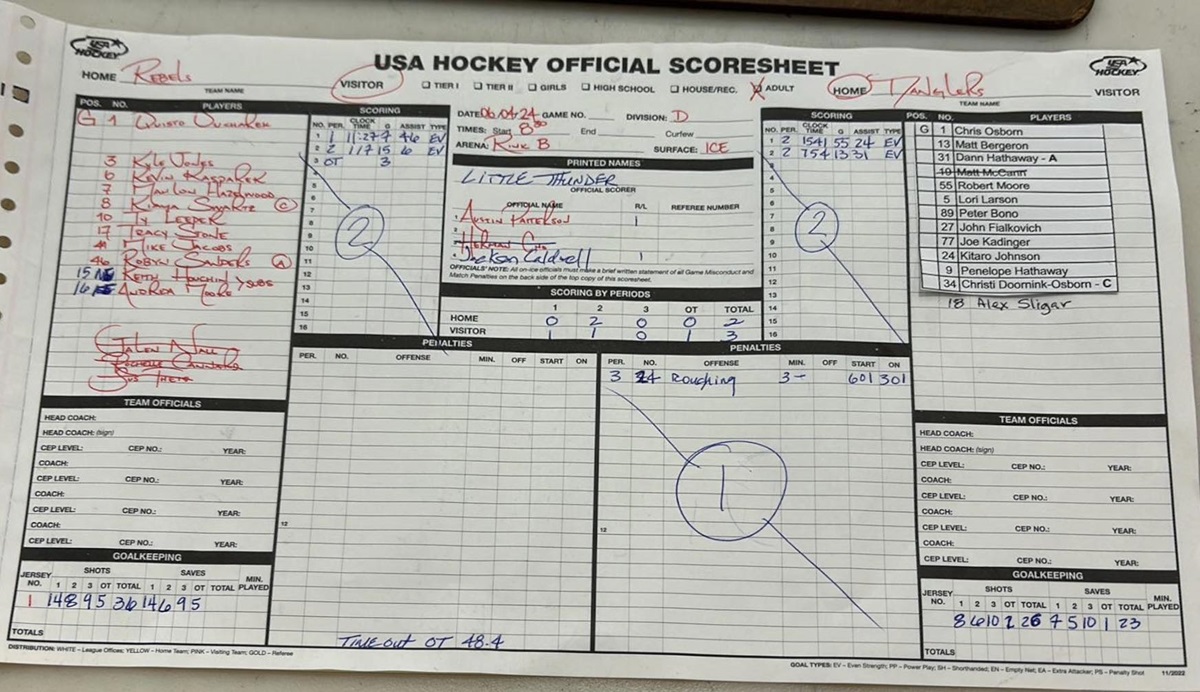 USA HOCKEY
USA HOCKEY OFFICIAL SCORESHEET
USA HOCKEY
HOME Rebels
TEAM NAME
VISITOR
TIER I TIER II GIRLS HIGH SCHOOL HOUSE/REC. X ADULT
HOME DANGLERS VISITOR
TEAM NAME
POS. NO. PLAYERS
G 1
3 Kyle Jones
6 Kevin Kasparek
7 Marlow Hazelwood
8 Swartz C
10 Ty Leeper
17 Tracy Stone
41 Mike Jacobs
46 Robyn Sanders A
15 Keith > SUBS
16 Andrea Moore
SCORING
NO. PER. CLOCK TIME G ASSIST TYPE
1 1 11:27 7 46 EV
2 2 1171 5 6 EV
3 OT 3
4
5
6
7
8
9
10
11
12
13
14
15
16
2
DATE 06/04/24 GAME NO. DIVISION: D
TIMES: Start 8:30 End Curfew
ARENA: Rink B SURFACE: ICE
PRINTED NAMES
LITTLE THUNDER
OFFICIAL SCORER
OFFICIAL NAME R/L REFEREE NUMBER
1 Austin Patterson
2
3
4 Jackson Caldwell
OFFICIALS' NOTE: All on-ice officials must make a brief written statement of all Game Misconduct and
Match Penalties on the back side of the top copy of this scoresheet.
SCORING BY PERIODS
1 2 3 OT TOTAL
HOME 0 2 0 0 2
VISITOR 1 1 0 1 3
SCORING
NO. PER. CLOCK TIME G ASSIST TYPE
1 2 1541 55 24 EV
2 2 754 13 31 EV
3
4
5
6
7
8
9
10
11
12
13
14
15
16
2
POS. NO. PLAYERS
G 1 Chris Osborn
13 Matt Bergeron
31 Dann Hathaway - A
19 Matt McCann
55 Robert Moore
5 Lori Larson
89 Peter Bono
27 John Fialkovich
77 Joe Kadinger
24 Kitaro Johnson
9 Penelope Hathaway
34 Christi Doornink-Osborn - C
18 Alex Sligar
PENALTIES
PER. NO. OFFENSE MIN. OFF START ON
12
PENALTIES
PER. NO. OFFENSE MIN. OFF START ON
3 24 Roughing 3- 601 301
1
12
TEAM OFFICIALS
HEAD COACH:
HEAD COACH: (sign)
CEP LEVEL: CEP NO.: YEAR:
COACH:
CEP LEVEL: CEP NO.: YEAR:
COACH:
CEP LEVEL: CEP NO.: YEAR:
COACH:
CEP LEVEL: CEP NO.: YEAR:
GOALKEEPING
JERSEY NO. SHOTS SAVES MIN. PLAYED
1 2 3 OT TOTAL 1 2 3 OT TOTAL
1 14 8 9 5 36 14 6 9 5
TOTALS
TEAM OFFICIALS
HEAD COACH:
HEAD COACH: (sign)
CEP LEVEL: CEP NO.: YEAR:
COACH:
CEP LEVEL: CEP NO.: YEAR:
COACH:
CEP LEVEL: CEP NO.: YEAR:
COACH:
CEP LEVEL: CEP NO.: YEAR:
GOALKEEPING
JERSEY NO. SHOTS SAVES MIN. PLAYED
1 2 3 OT TOTAL 1 2 3 OT TOTAL
8 6 10 2 26 7 5 10 1 23
TOTALS
TIMEOUT OT 48.4
DISTRIBUTION: WHITE – League Offices; YELLOW – Home Team; PINK – Visiting Team; GOLD – Referee
GOAL TYPES: EV – Even Strength; PP – Power Play; SH – Shorthanded; EN – Empty Net; EA – Extra Attacker; PS – Penalty Shot 11/2022